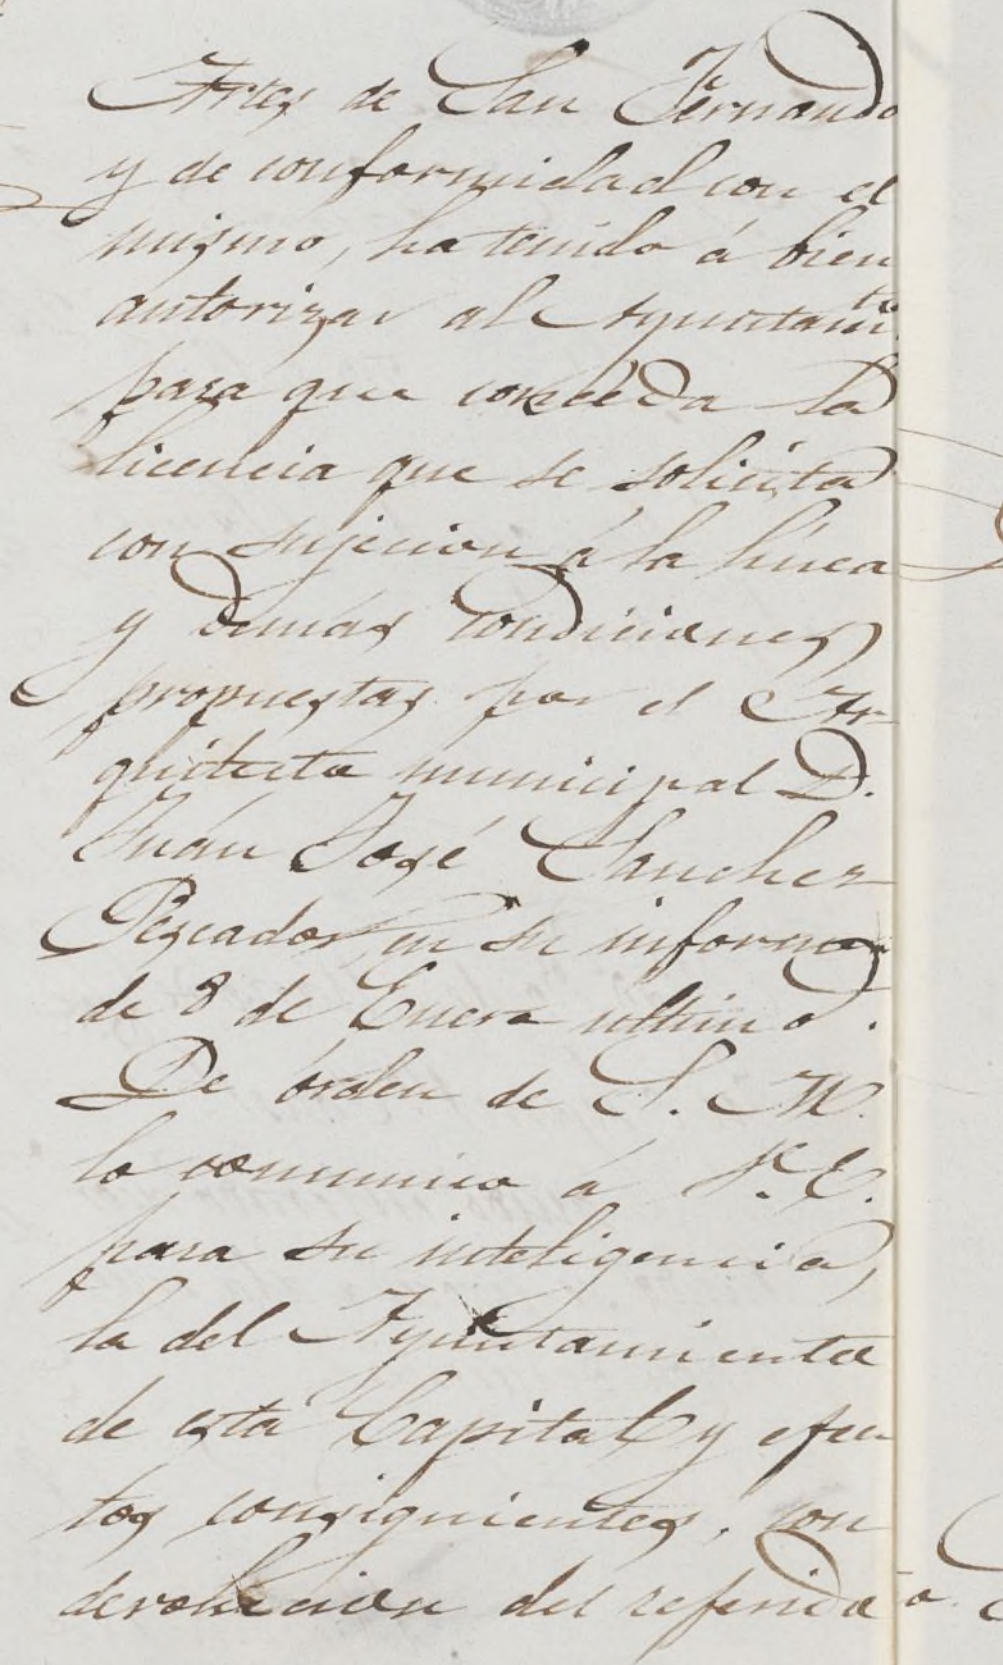 Artes de San Fernando
y de conformidad con el
mismo, ha tenido á bien
autorizar al Ayuntamto
para que conceda la
licencia que se solicita
con sujecion á la línea
y demás condiciones
propuestas por el Ar-
quitecto municipal D.
Juan José Sanchez
Pescador en su informe
de 8 de Enero ultimo.
De órden de S. M.
lo comunico á V. E.
para su inteligencia,
la del Ayuntamiento
de esta Capital y efec
tos consiguientes, con
devolucion del referido